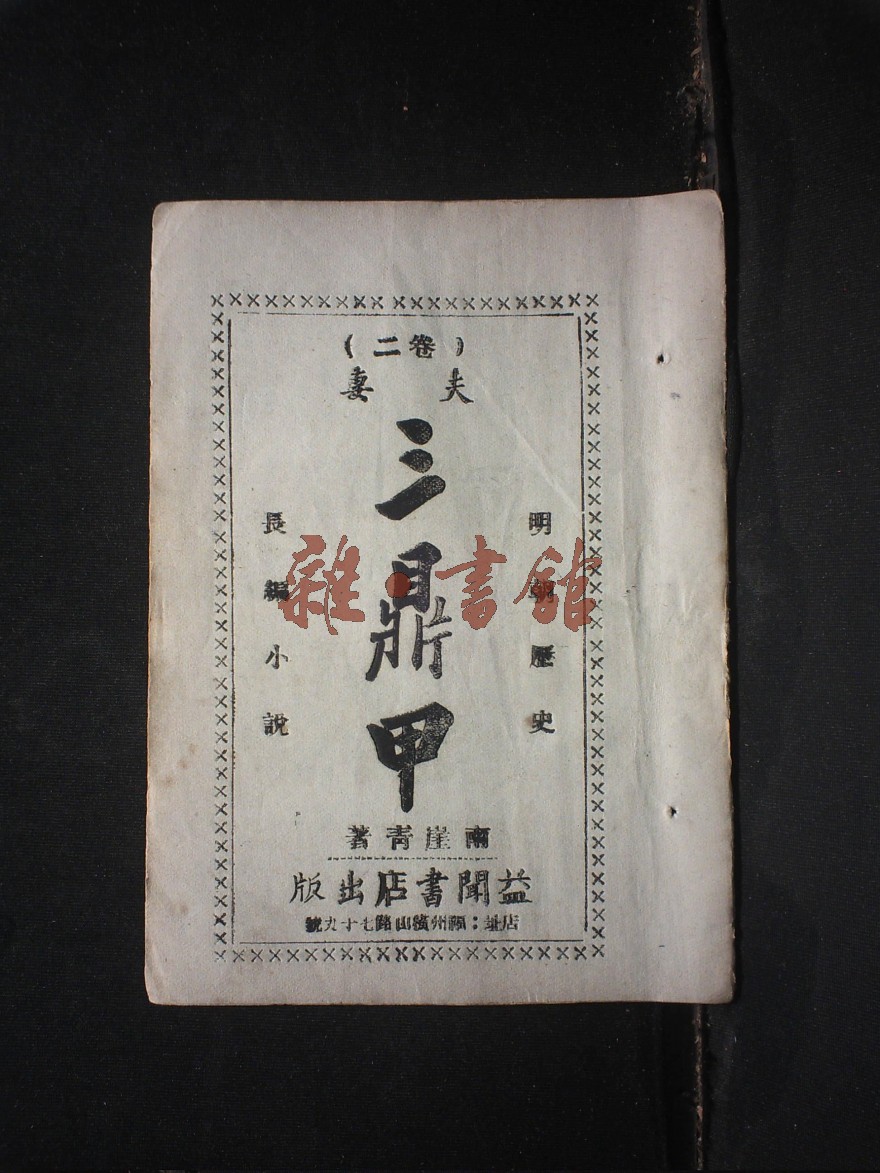 （卷二）
夫妻
三鼎甲
明朝歷史
長編小說
南崖青著
益聞書店出版
店址：福州橫山路七十九號
雜·書館